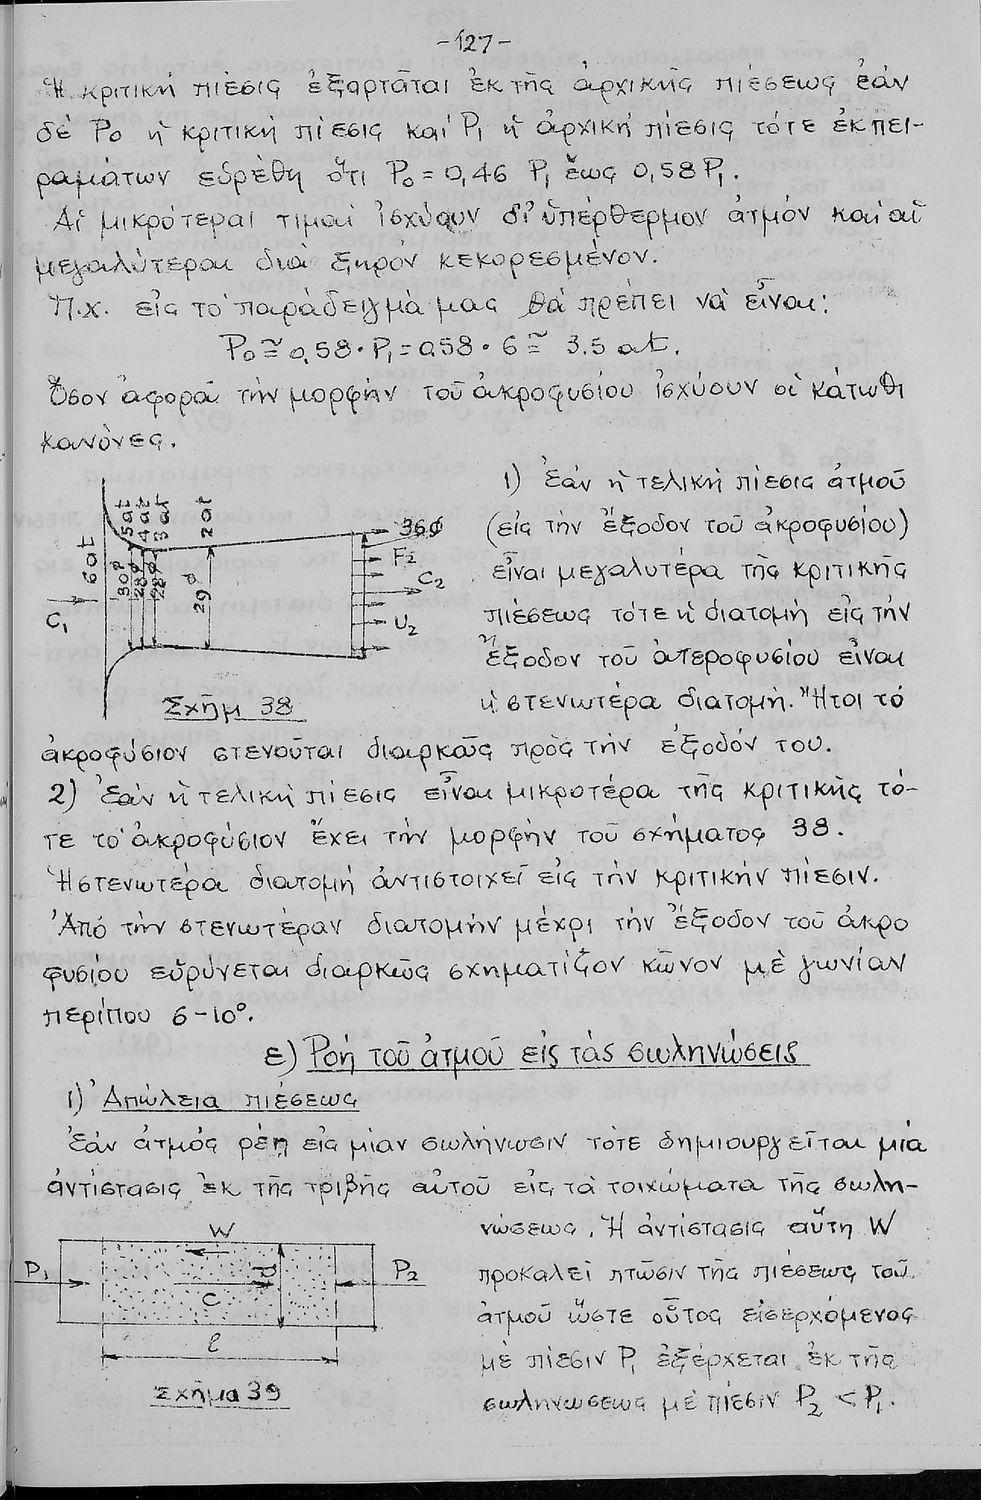 -127-
Ἡ κριτική πίεσις ἐξαρτᾶται ἐκ τῆς ἀρχικῆς πιέσεως ἐάν
δέ Po ἡ κριτική πίεσις καί P₁ ἡ ἀρχική πίεσις τότε ἐκ πει-
ραμάτων εὑρέθη ὅτι Po = 0,46 P₁ ἕως 0,58 P₁.
Αἱ μικρότεραι τιμαί ἰσχύουν δι' ὑπέρθερμον ἀτμόν καί αἱ
μεγαλύτεραι διά ξηρόν κεκορεσμένον.
Π.χ. εἰς τό παράδειγμα μας θά πρέπει νά εἶναι:
Po ≅ 0,58 · P₁ = 058 · 6 ≅ 3.5 at.
Ὅσον ἀφορᾶ τήν μορφήν τοῦ ἀκροφυσίου ἰσχύουν οἱ κάτωθι
κανόνες.
1) Ἐάν ἡ τελική πίεσις ἀτμοῦ
(εἰς τήν ἔξοδον τοῦ ἀκροφυσίου)
εἶναι μεγαλυτέρα τῆς κριτικῆς
πιέσεως τότε ἡ διατομή εἰς τήν
ἔξοδον τοῦ ἀκροφυσίου εἶναι
ἡ στενωτέρα διατομή. Ἤτοι τό
6 at
5 at
4 at
3 at
2 at
30φ
28φ
28φ
29
d
36φ
F₂
C₂
U₂
C₁
Σχῆμ 38
ἀκροφύσιον στενοῦται διαρκῶς πρός τήν ἔξοδόν του.
2) Ἐάν ἡ τελική πίεσις εἶναι μικροτέρα τῆς κριτικῆς τό-
τε τό ἀκροφύσιον ἔχει τήν μορφήν τοῦ σχήματος 38.
Ἡ στενωτέρα διατομή ἀντιστοιχεῖ εἰς τήν κριτικήν πίεσιν.
Ἀπό τήν στενωτέραν διατομήν μέχρι τήν ἔξοδον τοῦ ἀκρο
φυσίου εὐρύνεται διαρκῶς σχηματίζον κῶνον μέ γωνίαν
περίπου 6-10°.
ε) Ροή τοῦ ἀτμοῦ εἰς τάς σωληνώσεις
1) Ἀπώλεια πιέσεως
Ἐάν ἀτμός ρέη εἰς μίαν σωλήνωσιν τότε δημιουργεῖται μία
ἀντίστασις ἐκ τῆς τριβῆς αὐτοῦ εἰς τά τοιχώματα τῆς σωλη-
νώσεως. Ἡ ἀντίστασις αὕτη W
προκαλεῖ πτῶσιν τῆς πιέσεως τοῦ
ἀτμοῦ ὥστε οὗτος εἰσερχόμενος
μέ πίεσιν P₁ ἐξέρχεται ἐκ τῆς
σωληνώσεως μέ πίεσιν P₂ < P₁.
W
P₁
P₂
d
C
l
Σχῆμα 39